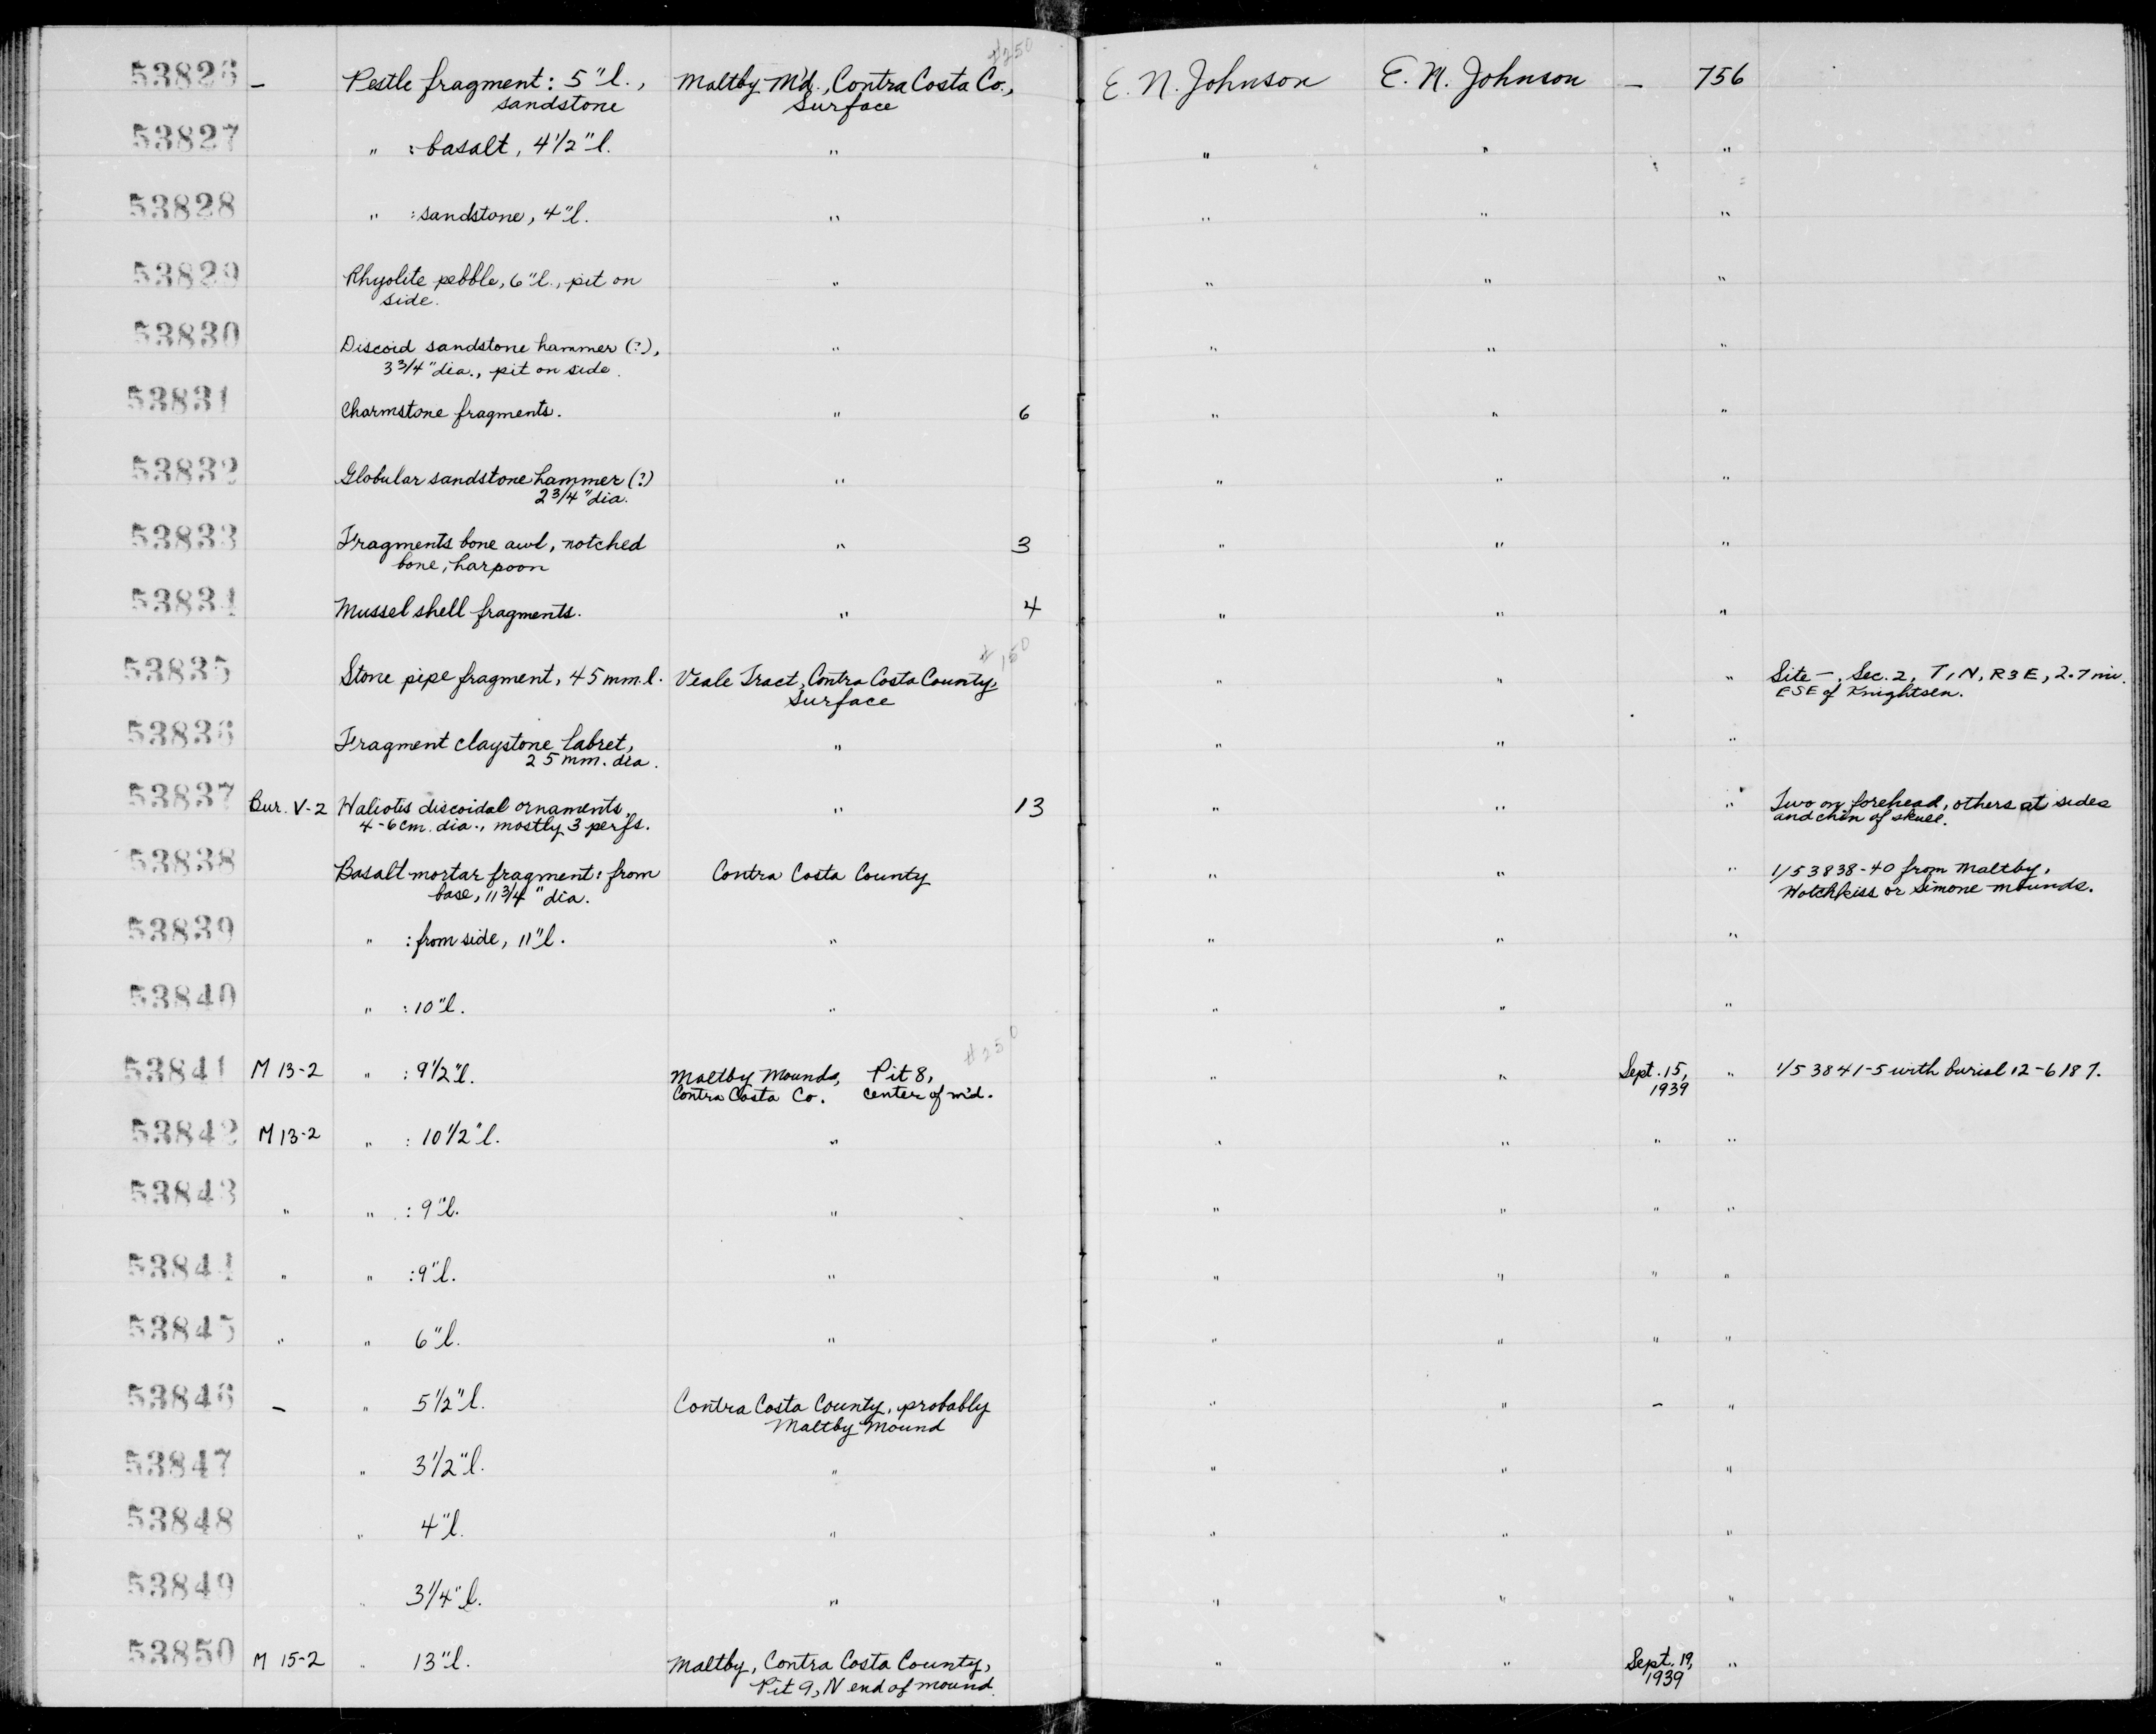 #250
53826 – Pestle fragment: 5"l., Maltby M'd., Contra Costa Co., E. N. Johnson E. N. Johnson – 756
sandstone Surface
53827 " : basalt, 4 1/2" l. " " " "
53828 " : sandstone, 4"l. " " " "
53829 Rhyolite pebble, 6"l., pit on " " " "
side.
53830 Discoid sandstone hammer (?), " " " "
3 3/4" dia., pit on side.
53831 Charmstone fragments. " 6 " " "
53832 Globular sandstone hammer (?) " " " "
2 3/4" dia.
53833 Fragments bone awl, notched " 3 " " "
bone, harpoon
53834 Mussel shell fragments. " 4 " " "
# 150
53835 Stone pipe fragment, 45 mm. l. Veale Tract, Contra Costa County, " " " Site –, Sec. 2, T1N, R3E, 2.7 mi.
Surface ESE of Knightsen.
53836 Fragment claystone labret, " " " "
25 mm. dia.
53837 Bur. V-2 Haliotis discoidal ornaments, " 13 " " " Two on forehead, others at sides
4-6 cm. dia., mostly 3 perfs. and chin of skull.
53838 Basalt mortar fragment: from Contra Costa County " " " 1/53838-40 from Maltby,
base, 11 3/4" dia. Hotchkiss or Simone mounds.
53839 " : from side, 11"l. " " " "
53840 " : 10"l. " " " "
#250
53841 M 13-2 " : 9 1/2"l. Maltby Mounds, Pit 8, " " Sept. 15, " 1/53841-5 with burial 12-6187.
Contra Costa Co. center of m'd. 1939
53842 M 13-2 " : 10 1/2"l. " " " " "
53843 " " : 9"l. " " " " "
53844 " " : 9"l. " " " " "
53845 " " 6"l. " " " " "
53846 – " 5 1/2"l. Contra Costa County, probably " " – "
Maltby Mound
53847 " 3 1/2"l. " " " "
53848 " 4"l. " " " "
53849 " 3 1/4"l. " " " "
53850 M 15-2 " 13"l. Maltby, Contra Costa County, " " Sept. 19, "
Pit 9, N end of mound. 1939